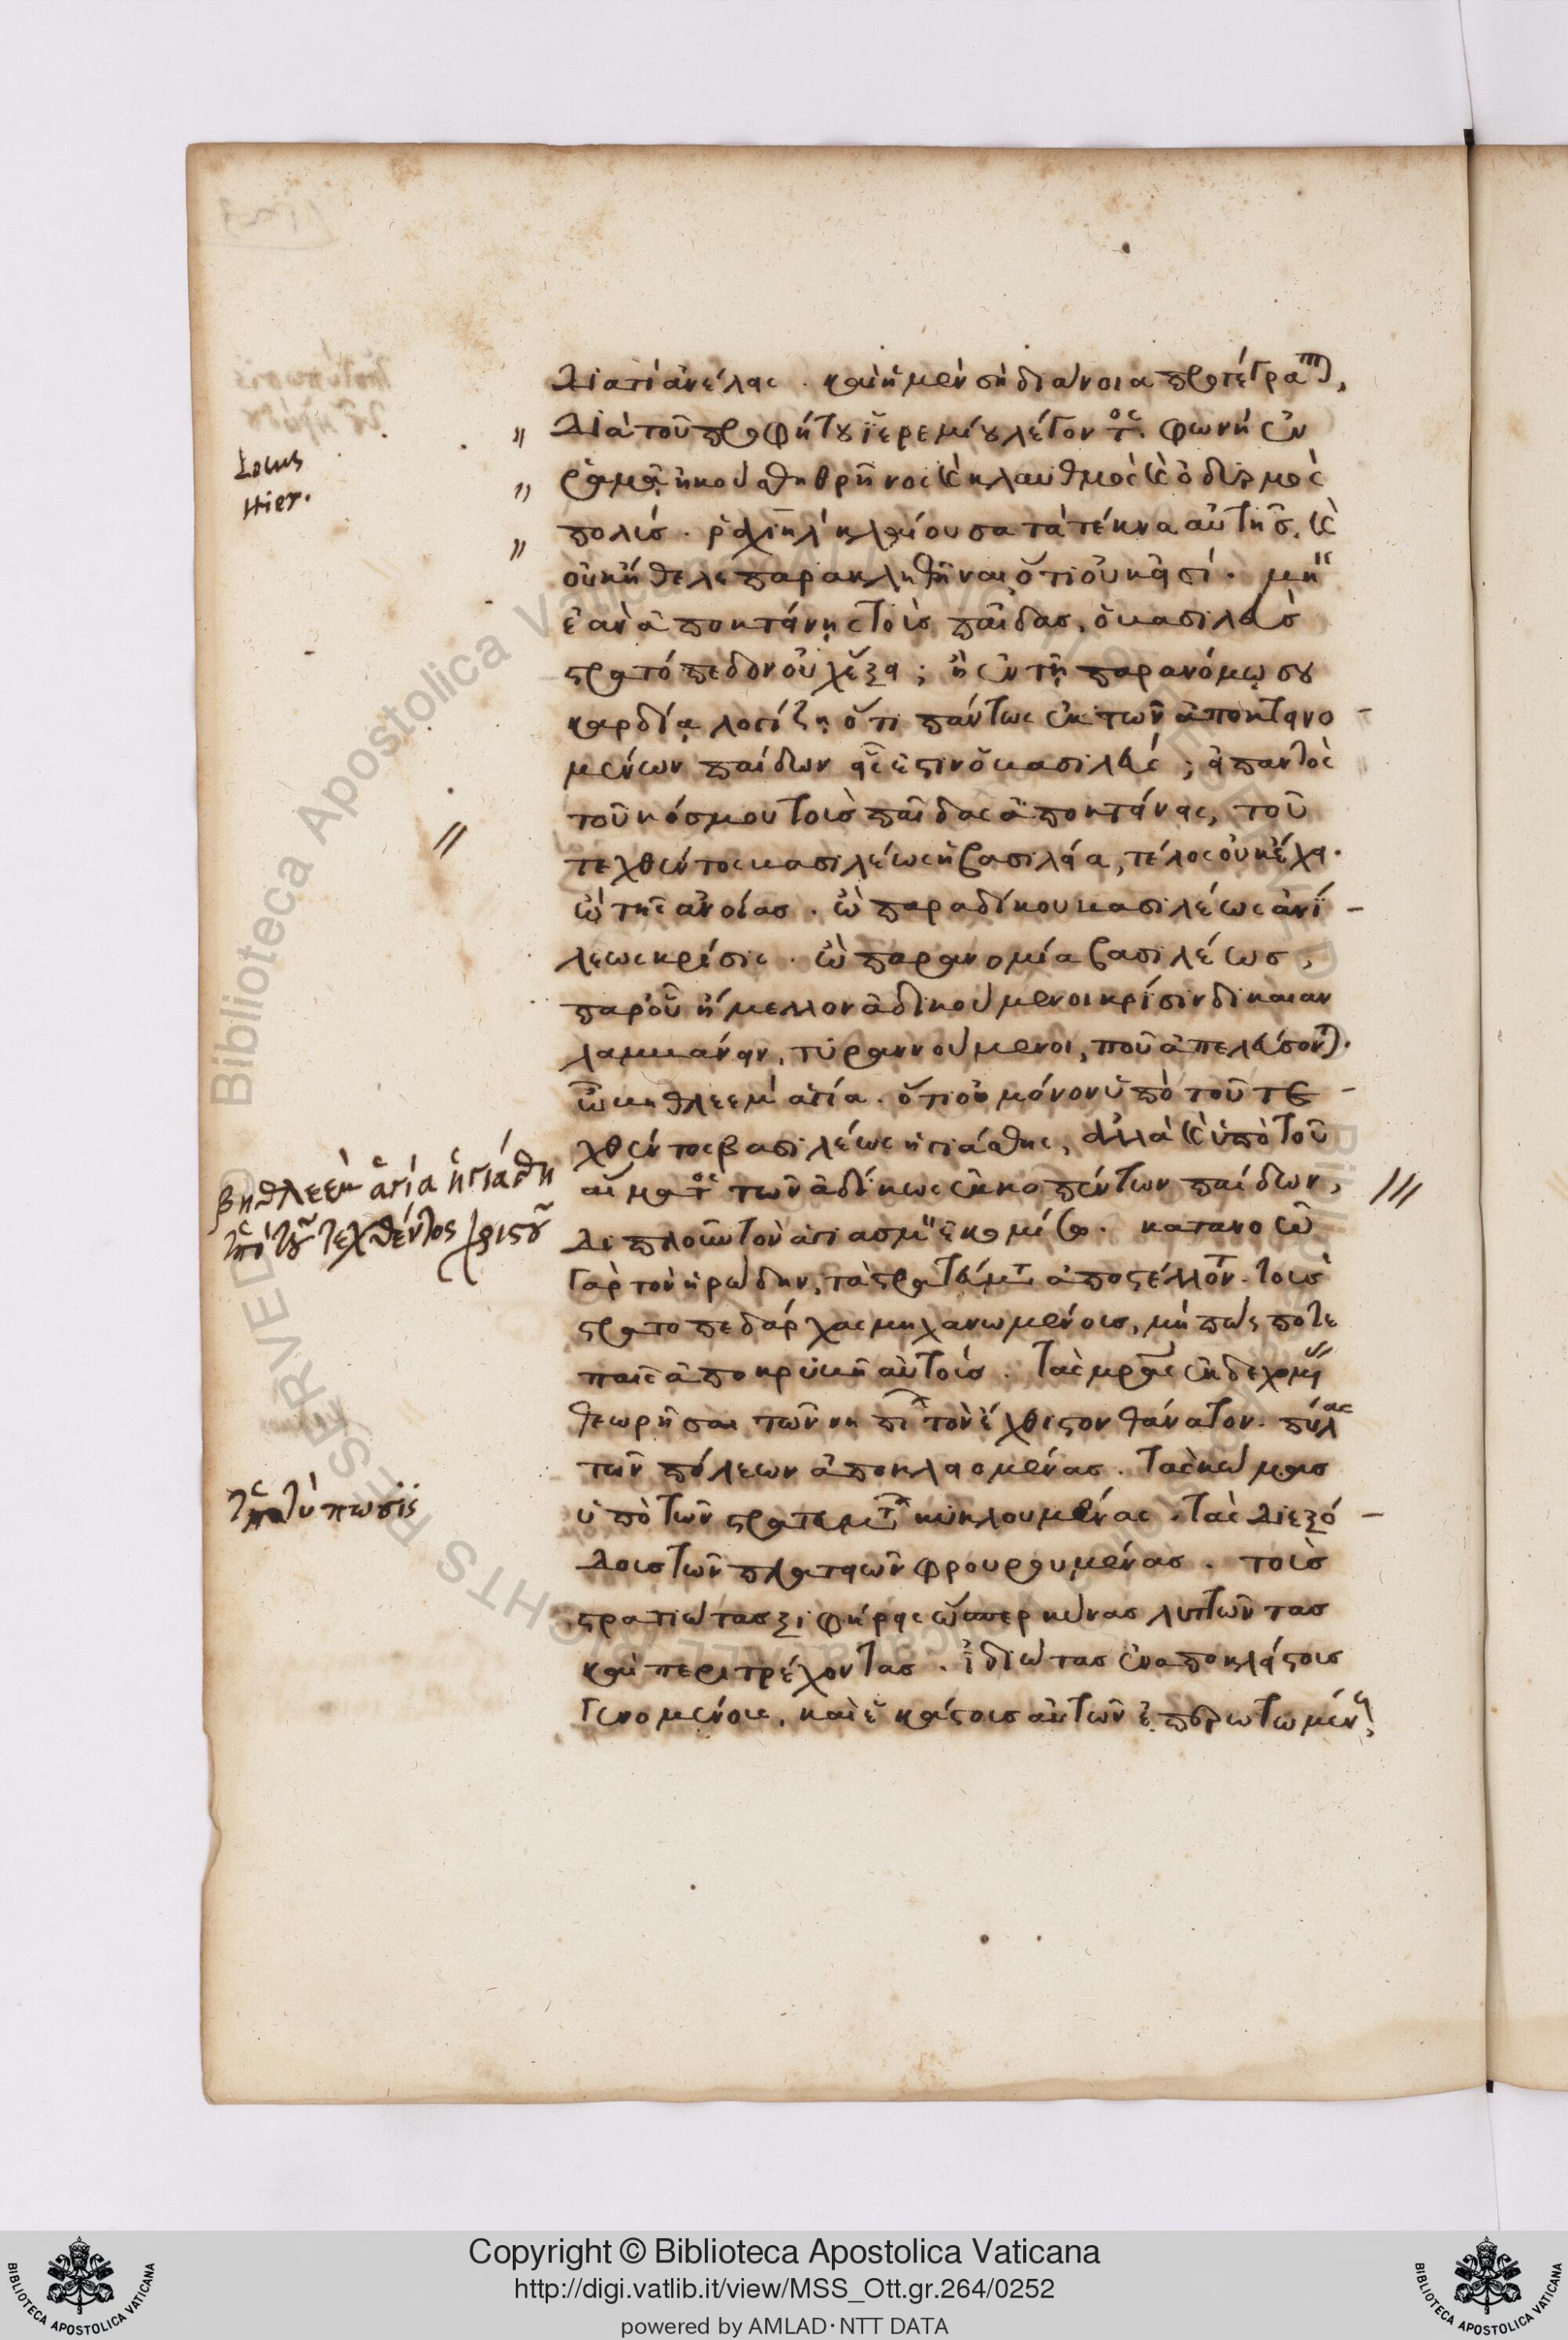 διατί ἀνεῖλες . καὶ ἡ μὲν σὴ διάνοια προγέγραπται,
Διὰ τοῦ προφήτου Ἰερεμίου λέγοντος. φωνὴ ἐν
Locus
Hier.
ῥαμᾶ ἠκούσθη θρῆνος καὶ κλαυθμὸς καὶ ὀδυρμὸς
πολύς . ῥαχιὴλ κλαίουσα τὰ τέκνα αὐτῆς, καὶ
οὐκ ἤθελε παρακληθῆναι ὅτι οὐκ εἰσί . μὴ
ἐὰν ἀποκτάνης τοὺς παῖδας, ὁ βασιλεὺς
στρατόπεδον οὐχ ἕξει ; ἢ ἐν τῇ παρανόμῳ σου
καρδίᾳ λογίζῃ ὅτι πάντως ἐκ τῶν ἀποκτεινο
μένων παίδων εἷς ἐστιν ὁ βασιλεύς ; εἰ παντὸς
τοῦ κόσμου τοὺς παῖδας ἀποκτάνεις, τοῦ
τεχθέντος βασιλέως ἡ βασιλεία, τέλος οὐκ ἔχει.
ὢ τῆς ἀνοίας . ὢ παραδίκου βασιλέως ἀνί
λεως κρίσις . ὢ παρανομία βασιλέως,
παρ' οὗ ἤμελλον ἀδικούμενοι κρίσιν δικαίαν
λαμβάνειν, τυραννούμενοι, ποῦ ἀπελεύσονται.
ὦ βηθλεὲμ ἁγία . ὅτι οὐ μόνον ὑπὸ τοῦ τε
χθέντος βασιλέως ἡγιάσθης, ἀλλὰ καὶ ὑπὸ τοῦ
βηθλεὲμ ἁγία ἡγιάσθη
ὑπὸ τοῦ τεχθέντος χριστοῦ
αἵματος τῶν ἀδίκως ἐκκοπέντων παίδων,
διπλοῦν τὸν ἁγιασμὸν ἐκομίσω . κατανοῶ
γὰρ τὸν ἡρώδην, τὰ στρατεύματα ἀποστέλλοντα. τοὺς
στρατοπεδάρχας μηχανωμένους, μήπως ποτε
παῖς ἀποκρυβῆ αὐτούς . τὰς μητέρας ἐκδεχομένας
θεωρῆσαι τῶν νηπίων τὸν ἔχθιστον θάνατον. πύλας
τῶν πόλεων ἀποκλειομένας . τὰς κώμας
ὑποτύπωσις
ὑπὸ τῶν στρατευμάτων κυκλουμένας . τὰς διεξό
δους τῶν πλατειῶν φρουρουμένας . τοὺς
στρατιώτας ξιφήρεις ὥσπερ κύνας λυττῶντας
καὶ περιτρέχοντας . ἰδιώτας ἐν ἀποκλείστοις
γενομένους, καὶ ἑκάστους αὐτῶν ἐπερωτωμένους
Copyright © Biblioteca Apostolica Vaticana
http://digi.vatlib.it/view/MSS_Ott.gr.264/0252
powered by AMLAD·NTT DATA
BIBLIOTECA APOSTOLICA VATICANA
BIBLIOTECA APOSTOLICA VATICANA